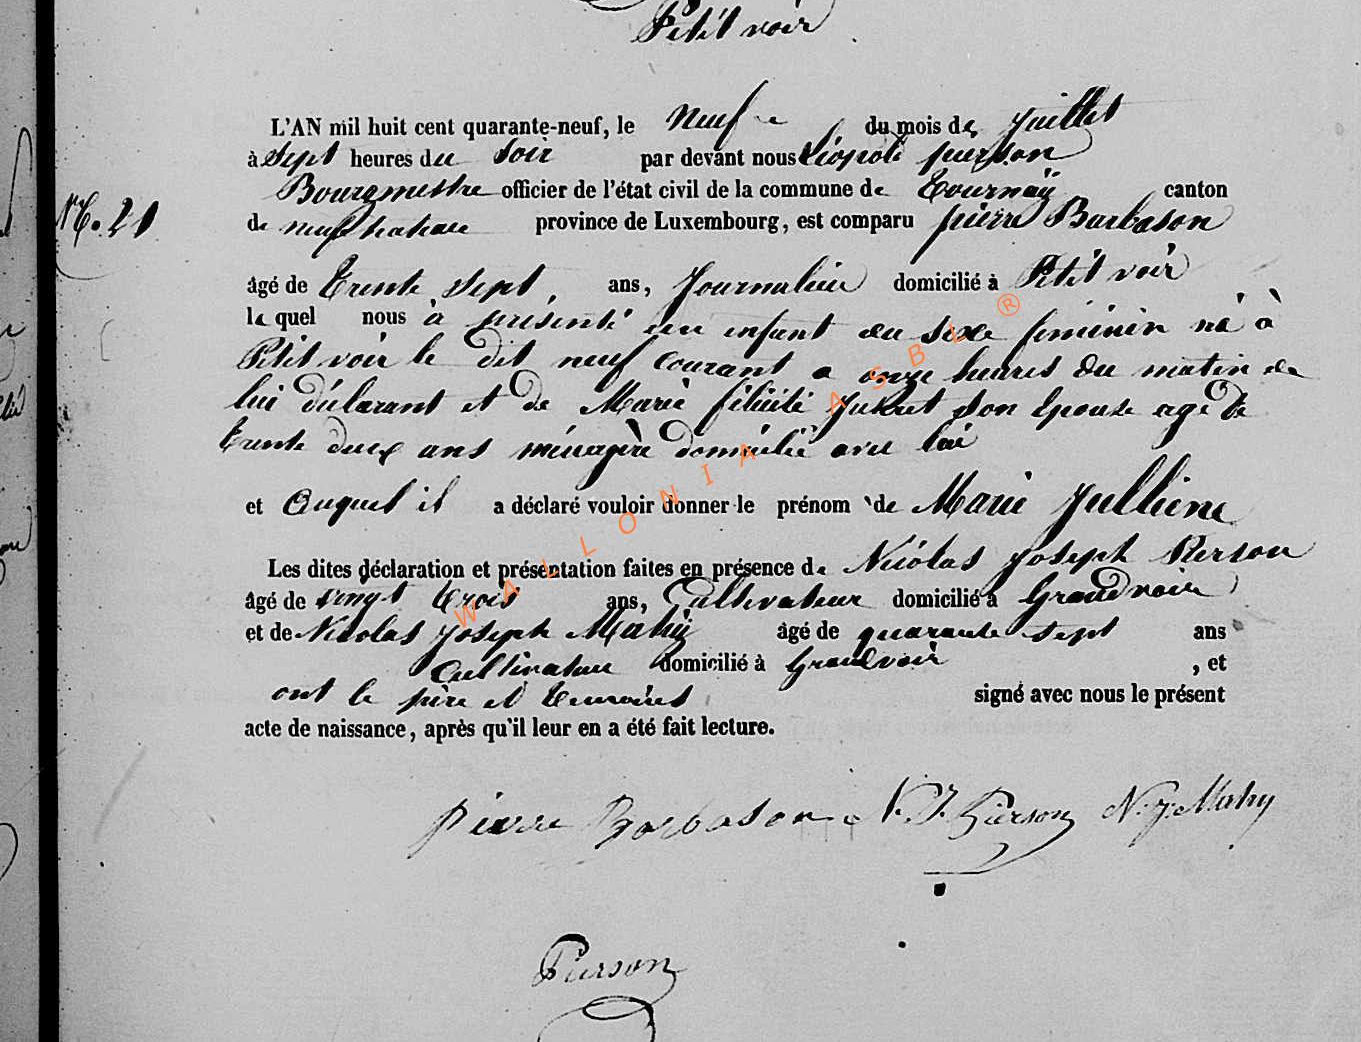 Petit voir
N°. 21
L'AN mil huit cent quarante-neuf, le neuf du mois de Juillet
à Sept heures du Soir par devant nous Léopold pierson
Bourgmestre officier de l'état civil de la commune de Tournaÿ canton
de neufchateau province de Luxembourg, est comparu pierre Barbason
âgé de Trente Sept, ans, Journalier domicilié à Petit voir
lequel nous à présenté un enfant du Sexe feminin né à
Petit voir le dit neuf Courant a onze heures du matin de
lui déclarant et de Marie félicité son Epouse agé de
Trente deux ans ménagère domicilié avec lui
et Auquel il a déclaré vouloir donner le prénom de Marie Julliene
Les dites déclaration et présentation faites en présence de Nicolas Joseph Pierson
âgé de vingt trois ans, Cultivateur domicilié à Grandvoir
et de Nicolas Joseph Mahÿ âgé de quarante sept ans
Cultivateur domicilié à Grandvoir , et
ont le père et temoins signé avec nous le présent
acte de naissance, après qu'il leur en a été fait lecture.
pierre Barbason N. J. Pierson N. J. Mahy
Pierson
WALLONIA ASBL ®